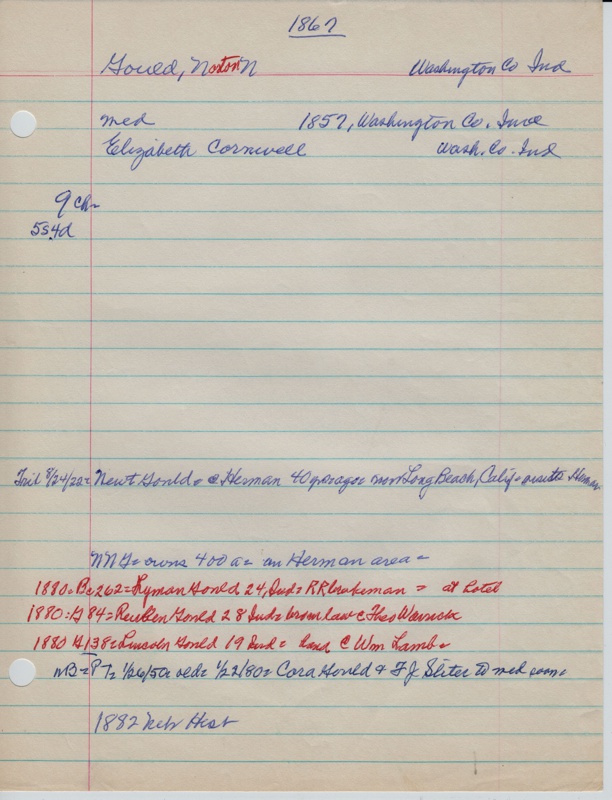 1867
Gould, Norton N Washington Co Ind
med 1857, Washington Co. Ind
Elizabeth Cornwell Wash. Co. Ind
9 ch-
5s4d
8/24/22= Newt Gould= @ Herman 40 yrs ago= now Long Beach, Calif= visits Herman
NNG= owns 400 a= in Herman area=
1880= Bc262= Lyman Gould 24, Ind= RR brakeman = at hotel
1880: G84= Reuben Gould 28 Ind= bro in law c Theo Warrick
1880 G138= Lincoln Gould 19 Ind= hand c Wm Lamb=
1/22/80= Cora Gould & F J Sliter to med soon=
1882 Neb Hist